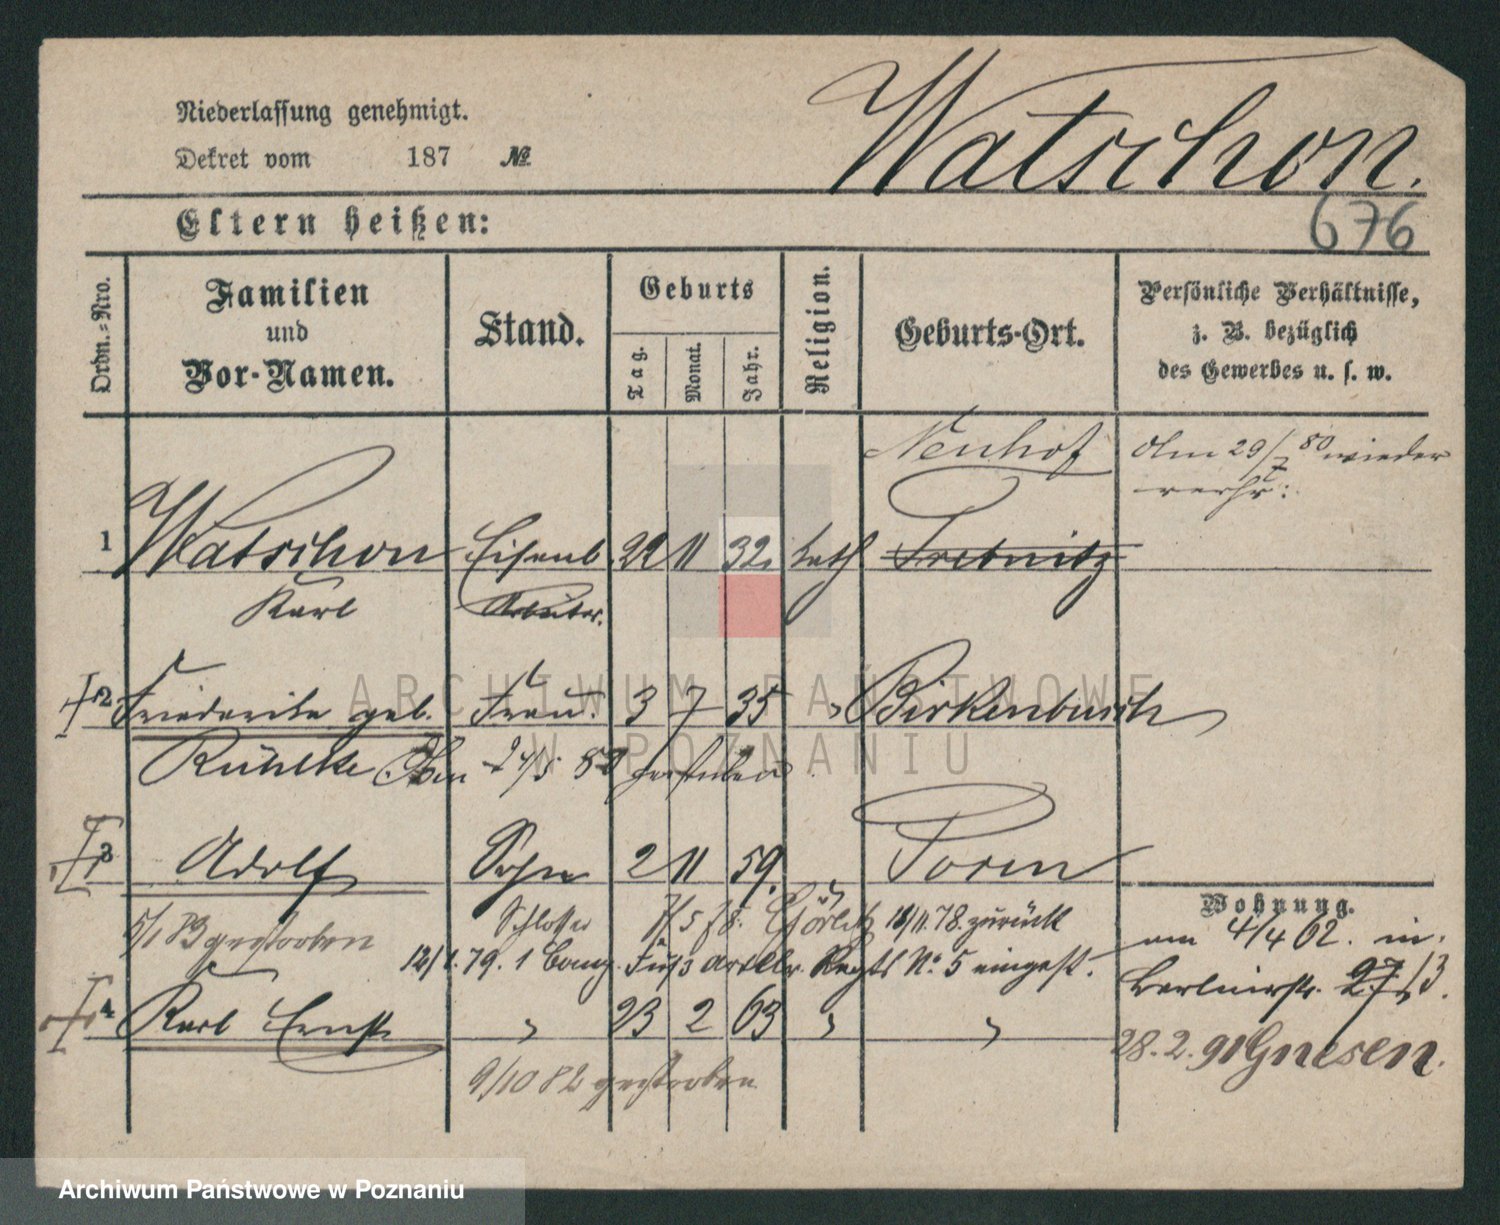 Niederlassung genehmigt.
Dekret vom 187 №
Watschon.
676
Eltern heißen:
Ordn.-Nro.
Familien und Vor-Namen.
Stand.
Geburts
Tag.
Monat.
Jahr.
Religion.
Geburts-Ort.
Persönliche Verhältnisse, z. B. bezüglich des Gewerbes u. s. w.
Neuhof
29/7 80 wieder
verh:
1 Watschon Eisenb. 22 11 32. kath Trebnitz
Karl Arbeiter.
2 Friederike geb. Frau. 3 7 35 " Birkenbusch
Rühlke 24/5 gestorben
3 Adolf Sohn 2 11 59. " Posen
Wohnung.
5/1 83 gestorben Schlosser 7/5 78. Görlitz 18/11 78. zurück
am 4/4 62. in
12/1. 79. 1 Comp. Fuß Artillr. Regts No. 5 eingest.
4 Karl Ernst " 23 2 63 " "
28. 2. 91 Gnesen.
9/10 82 gestorben
ARCHIWUM PAŃSTWOWE
W POZNANIU
Archiwum Państwowe w Poznaniu